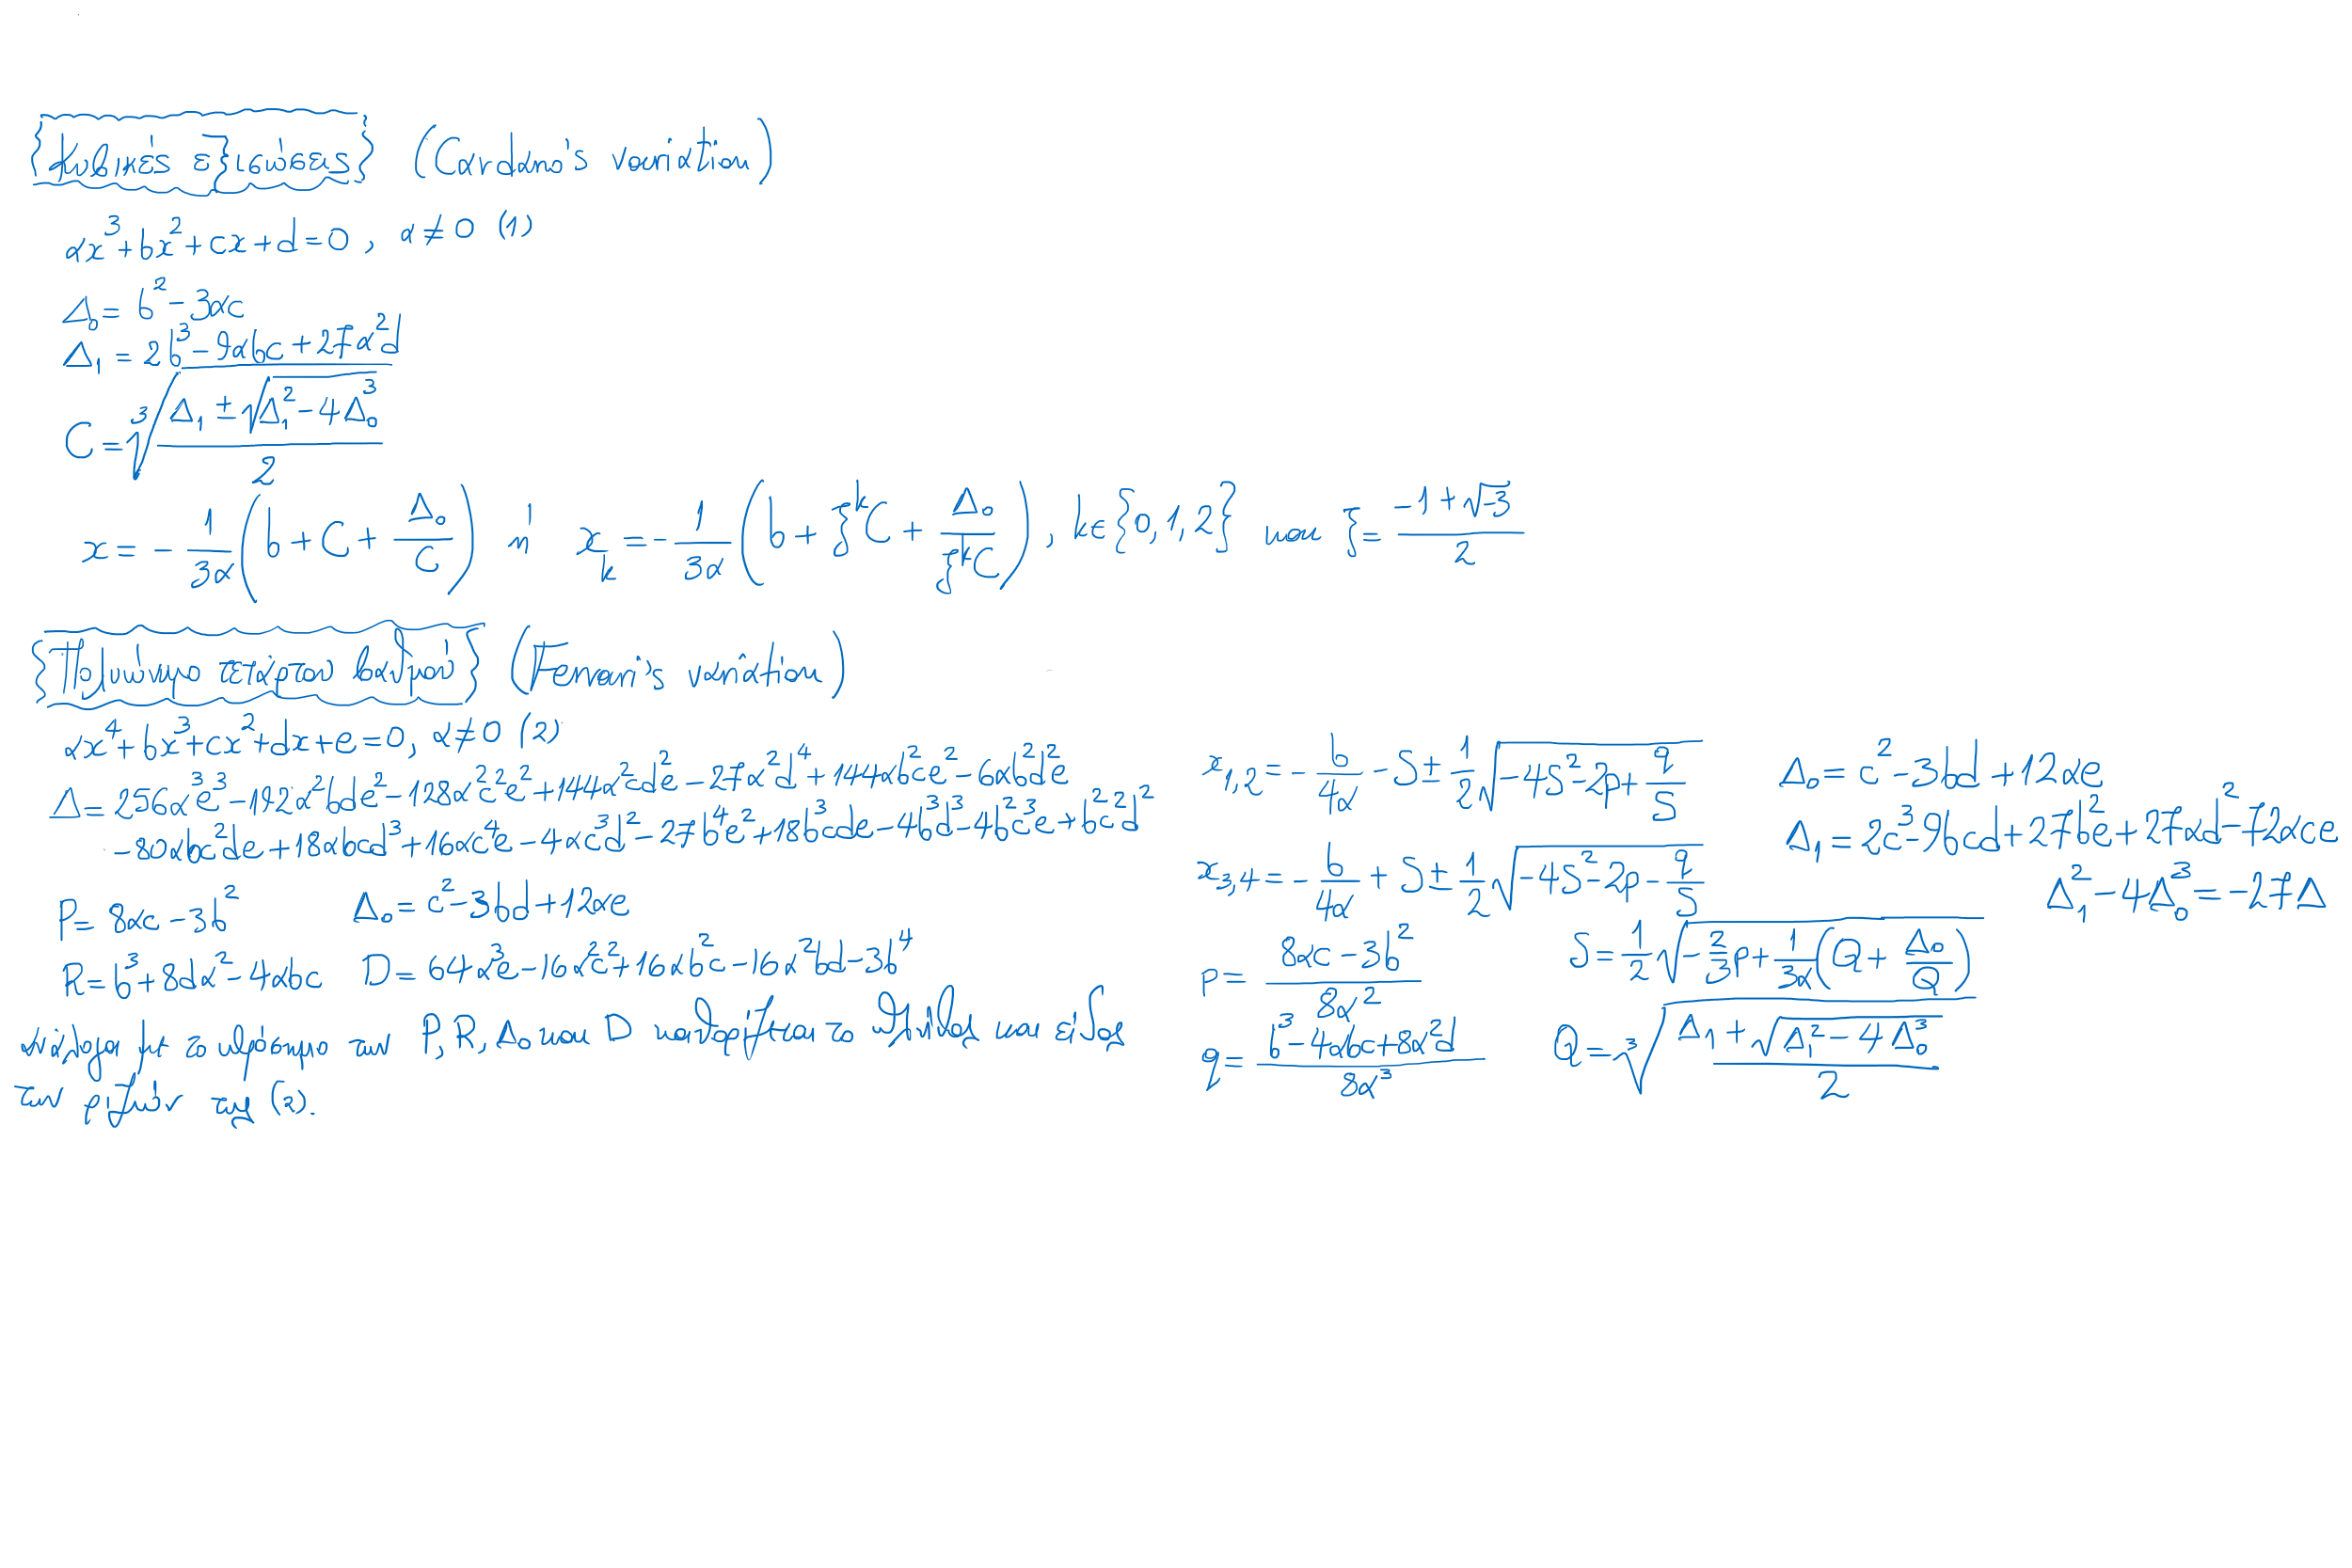 Κυβικές εξισώσεις (Cardano's variation)
αx³+bx²+cx+d=0, α≠0 (1)
Δ₀= b²-3αc
Δ₁ = 2b³-9αbc+27α²d
C=∛((Δ₁ ± √(Δ₁²-4Δ₀³))/2)
x=-1/(3α) (b+C+Δ₀/C) ή x_k=-1/(3α) (b+ξ^k C+Δ₀/(ξ^k C)), k∈{0,1,2} και ξ=(-1+√-3)/2
Πολυώνυμο τετάρτου βαθμού (Ferrari's variation)
αx⁴+bx³+cx²+dx+e=0, α≠0 (2)
Δ= 256α³e³-192α²bde²-128α²c²e²+144α²cd²e-27α²d⁴+144αb²ce²-6αb²d²e
-80αbc²de+18αbcd³+16αc⁴e-4αc³d²-27b⁴e²+18b³cde-4b³d³-4b²c³e+b²c²d²
P= 8αc-3b² Δ₀= c²-3bd+12αe
R=b³+8dα²-4αbc D=64α³e-16α²c²+16αb²c-16α²bd-3b⁴
Ανάλογα με το πρόσημο των P, R, Δ₀ και D καθορίζεται το πλήθος και είδος
των ριζών της (2).
x₁,₂=-b/(4α) -S±1/2 √(-4S²-2p+q/S) Δ₀= c²-3bd+12αe
Δ₁=2c³-9bcd+27b²e+27αd²-72αce
x₃,₄=-b/(4α) +S±1/2 √(-4S²-2p-q/S) Δ₁²-4Δ₀³=-27Δ
p=(8αc-3b²)/(8α²) S=1/2 √(-2/3 p+1/(3α) (Q+Δ₀/Q))
q=(b³-4αbc+8α²d)/(8α³) Q=∛((Δ₁+√(Δ₁²-4Δ₀³))/2)